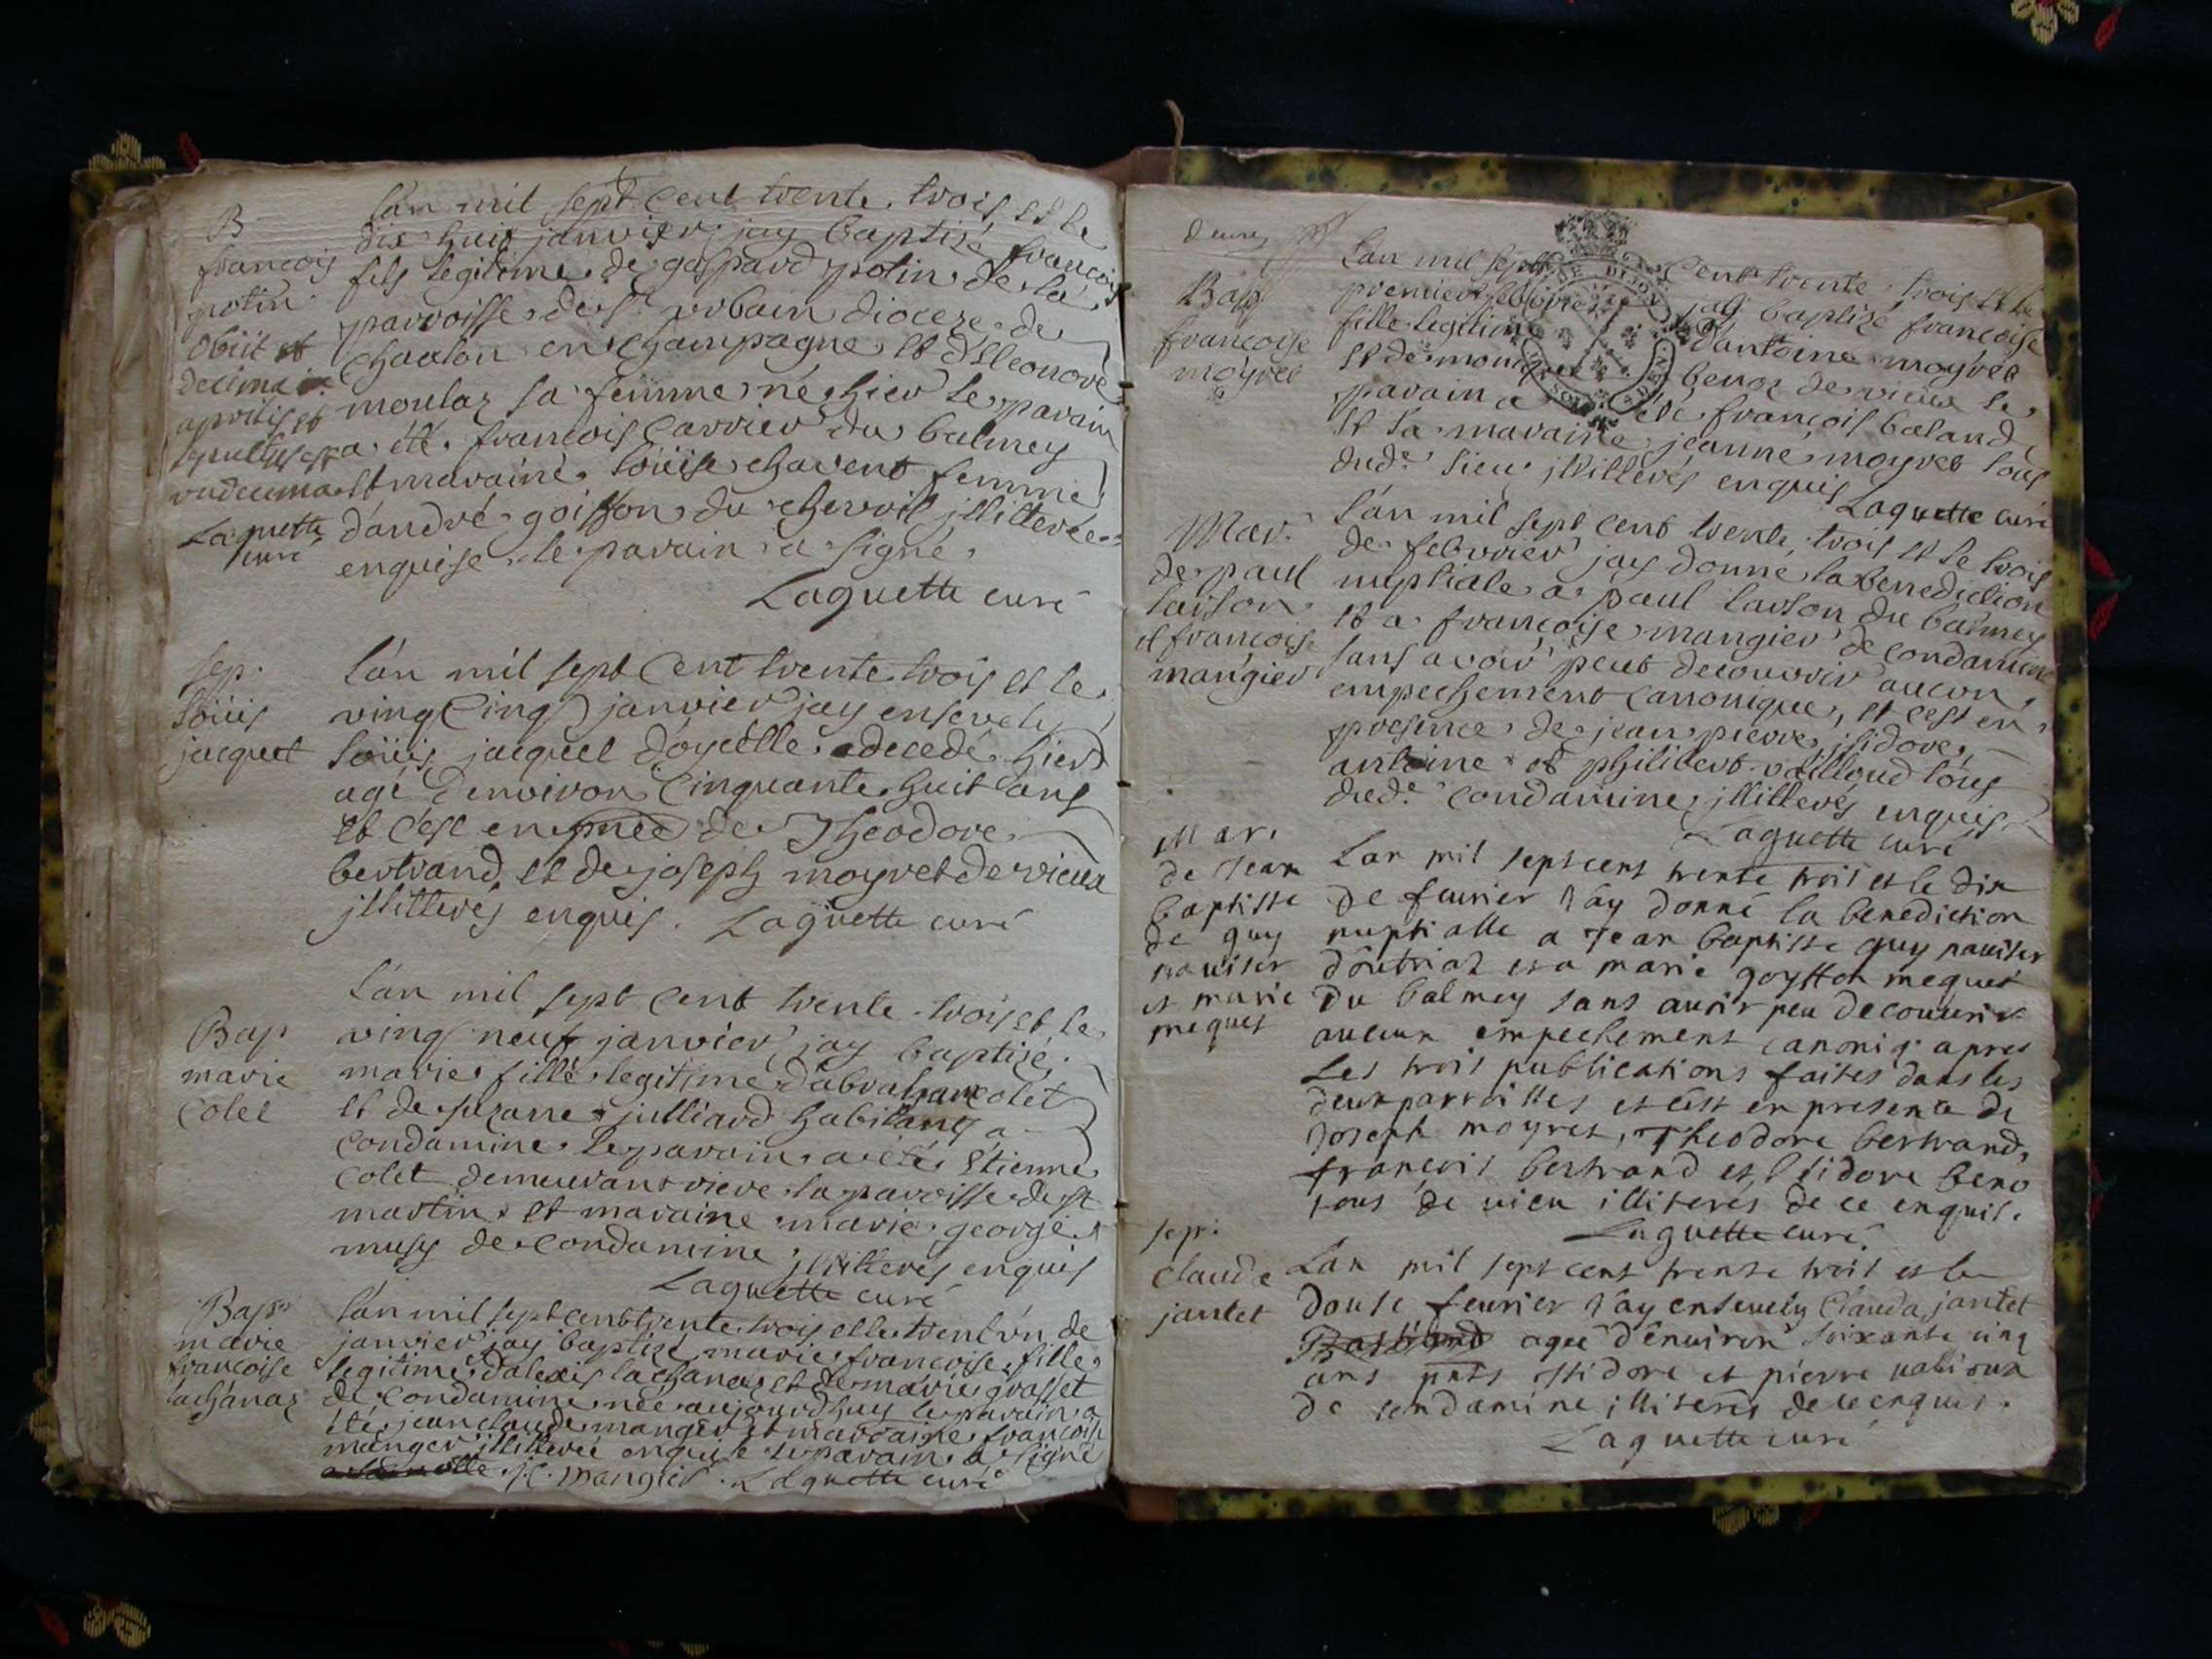 B
françois
potin
obiit et
decima
aprilis et
sepultus est
undecima
Laguette
curé
L'an mil sept cent trente trois et le
dix huit janvier jay baptizé françois
fils legitime de gaspard potin de la
parroisse de st urbain dioceze de
chaalon en champagne et d'Eleonore
moulaz sa femme né hier le parain
a été françois carrier du balmey
et maraine loüise chavent femme
d'andré goiffon du chevril jllitterée
enquise le parain a signé.
Laguette curé
sep.
Loüis
jacquet
L'an mil sept cent trente trois et le
ving cinq janvier jay ensevely
Loüis jacquet d'oyselle decedé hier
agé denviron cinquante huit ans
et c'est en pnce de Theodore
bertrand et de joseph moyret de vieux
jllitterés enquis. Laguette curé
Bap
marie
Colet
L'an mil sept cent trente trois et le
ving neuf janvier jay baptizé
marie fille legitime d'abraham colet
et de suzanne julliard habitans a
condamine le parain a eté Etienne
colet demeurant riere la paroisse de st
martin et maraine marie george
musy de condamine jllitterés enquis
Laguette curé
Bap
marie
françoise
lachanaz
L'an mil sept cent trente trois et le trent un de
janvier jay baptizé marie françoise fille
legitime d'alexis lachanaz et de marie grasset
de condamine née aujourdhuy le parain a
eté jean claude manger et marraine françoise
manger jllitterée enquise le parain a signé
j.c. mangier. Laguette curé
Bap
françoise
moyret
L'an mil sept cent trente trois et le
premier febvrier jay baptizé françoise
fille legitime d'antoine moyret
et de monique benoz de vieux le
parain a été françois baland
et la maraine jeanne moyret tous
dud.e lieu jllitterés enquis
Laguette curé
Mar.
de paul
laison
et françoise
mangier
L'an mil sept cent trente trois et le trois
de febvrier jay donné la benediction
nuptiale a paul laison du balmey
et a françoise mangier de condamine
sans avoir peut decouvrir aucun
empechement canonique, et c'est en
presence de jean pierre, jsidore,
antoine et philibert valilloud tous
dud.e condamine jllitterés enquis
Laguette curé
Mar.
de Jean
baptiste
de guy
pauiser
et marie
meques
Lan mil sept cens trente trois et le dix
de feurier J'ay donné la benediction
nuptialle a Jean baptiste guy pauiser
d'outriaz et a marie goyffon meques
du balmey sans auoir peu decouurir
aucun empechement canoniq. apres
les trois publications faites dans les
deux parroisses et c'est en presence de
Joseph moyret, Theodore bertrand,
françois bertrand et Isidore beno
tous de uieu illiterés de ce enquis.
Laguette curé
sep.
Claude
jantet
Lan mil sept cens trente trois et le
douse feurier J'ay enseuely Clauda jantet
agée d'enuiron soixante cinq
ans pnts Isidore et pierre
de condamine illiterés de ce enquis.
Laguette curé